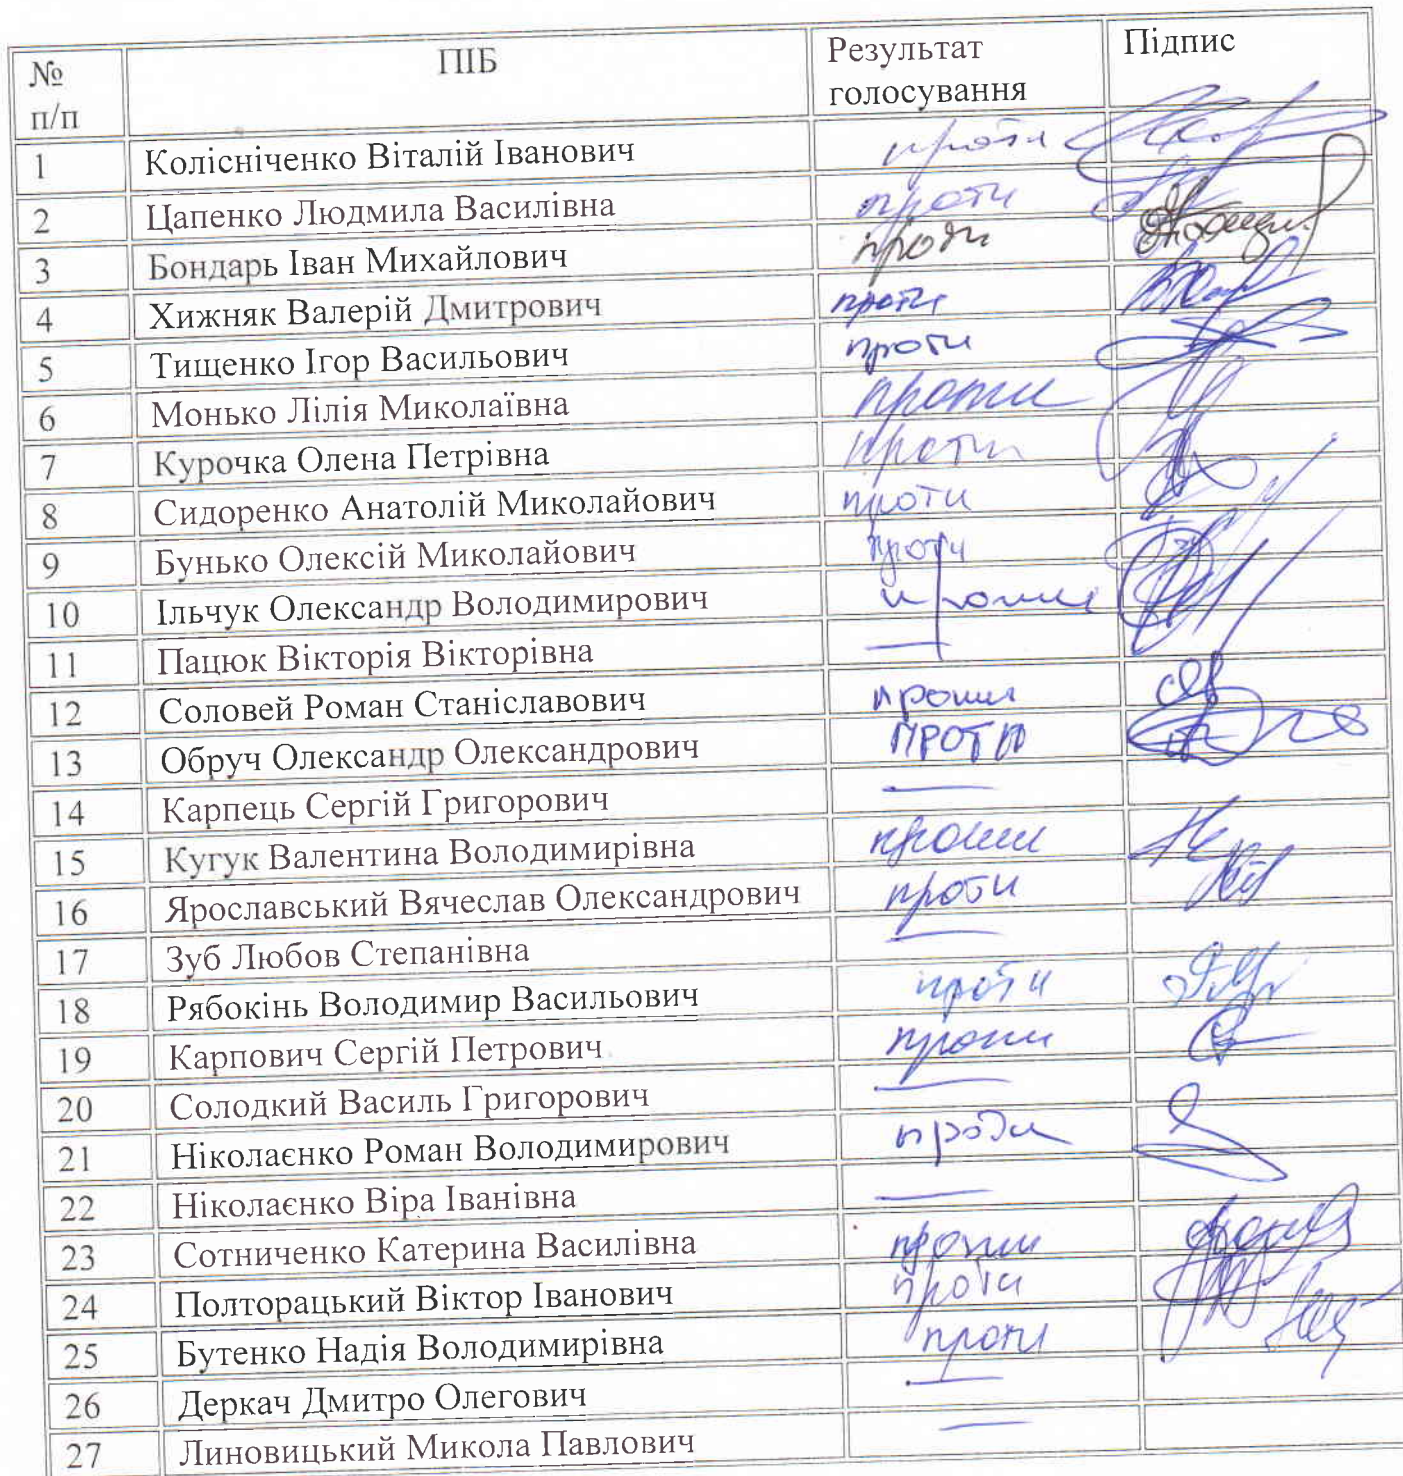 № п/п ПІБ Результат голосування Підпис
1 Колісніченко Віталій Іванович проти
2 Цапенко Людмила Василівна проти
3 Бондарь Іван Михайлович проти
4 Хижняк Валерій Дмитрович проти
5 Тищенко Ігор Васильович проти
6 Монько Лілія Миколаївна проти
7 Курочка Олена Петрівна проти
8 Сидоренко Анатолій Миколайович проти
9 Бунько Олексій Миколайович проти
10 Ільчук Олександр Володимирович проти
11 Пацюк Вікторія Вікторівна —
12 Соловей Роман Станіславович проти
13 Обруч Олександр Олександрович проти
14 Карпець Сергій Григорович —
15 Кугук Валентина Володимирівна проти
16 Ярославський Вячеслав Олександрович проти
17 Зуб Любов Степанівна —
18 Рябокінь Володимир Васильович проти
19 Карпович Сергій Петрович проти
20 Солодкий Василь Григорович —
21 Ніколаєнко Роман Володимирович проти
22 Ніколаєнко Віра Іванівна —
23 Сотниченко Катерина Василівна проти
24 Полторацький Віктор Іванович проти
25 Бутенко Надія Володимирівна проти
26 Деркач Дмитро Олегович —
27 Линовицький Микола Павлович —